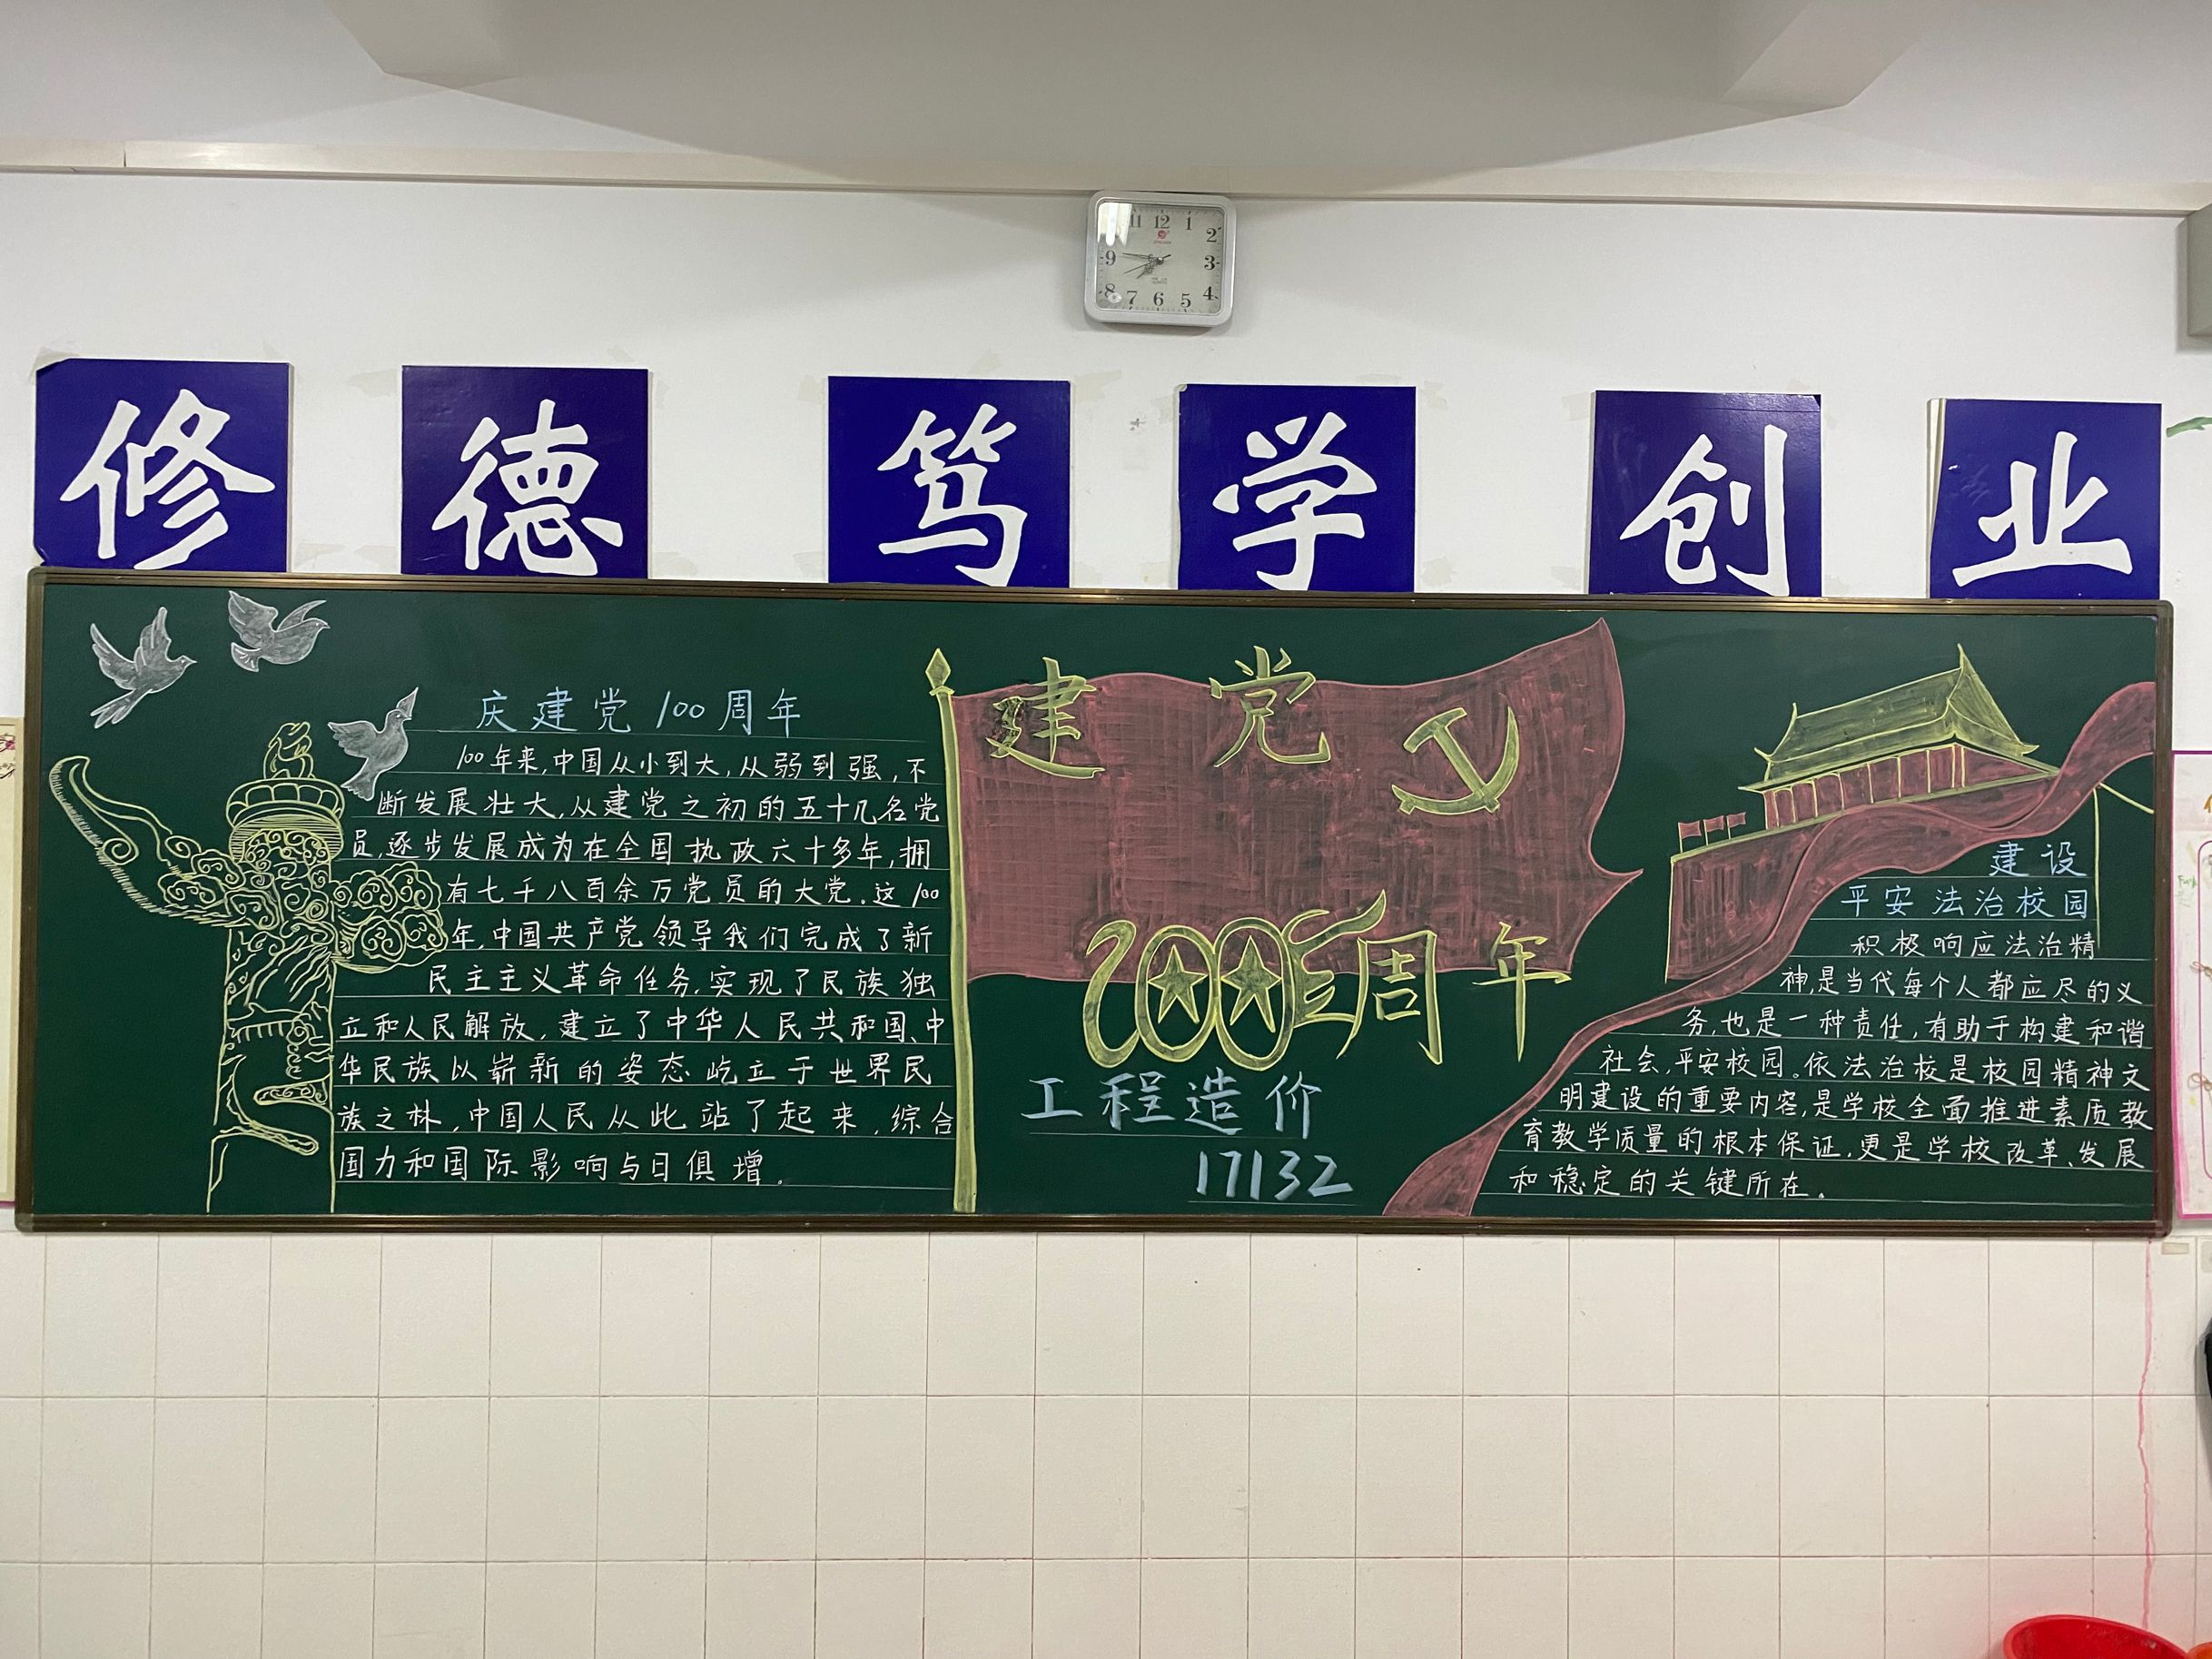 11 12 1
2
9 3
8 4
7 6 5
修 德 笃 学 创 业
庆建党100周年
100年来,中国从小到大,从弱到强,不
断发展壮大,从建党之初的五十几名党
员,逐步发展成为在全国执政六十多年,拥
有七千八百余万党员的大党.这100
年,中国共产党领导我们完成了新
民主主义革命任务,实现了民族独
立和人民解放,建立了中华人民共和国、中
华民族以崭新的姿态屹立于世界民
族之林,中国人民从此站了起来,综合
国力和国际影响与日俱增.
建党
100周年
工程造价
17132
建设
平安法治校园
积极响应法治精
神,是当代每个人都应尽的义
务,也是一种责任,有助于构建和谐
社会,平安校园。依法治校是校园精神文
明建设的重要内容,是学校全面推进素质教
育教学质量的根本保证,更是学校改革、发展
和稳定的关键所在.